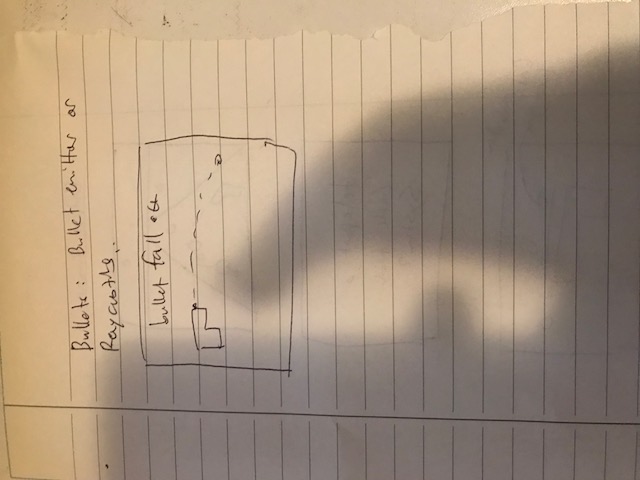 Bullets: Bullet emitter or
Raycasting..
bullet fall off